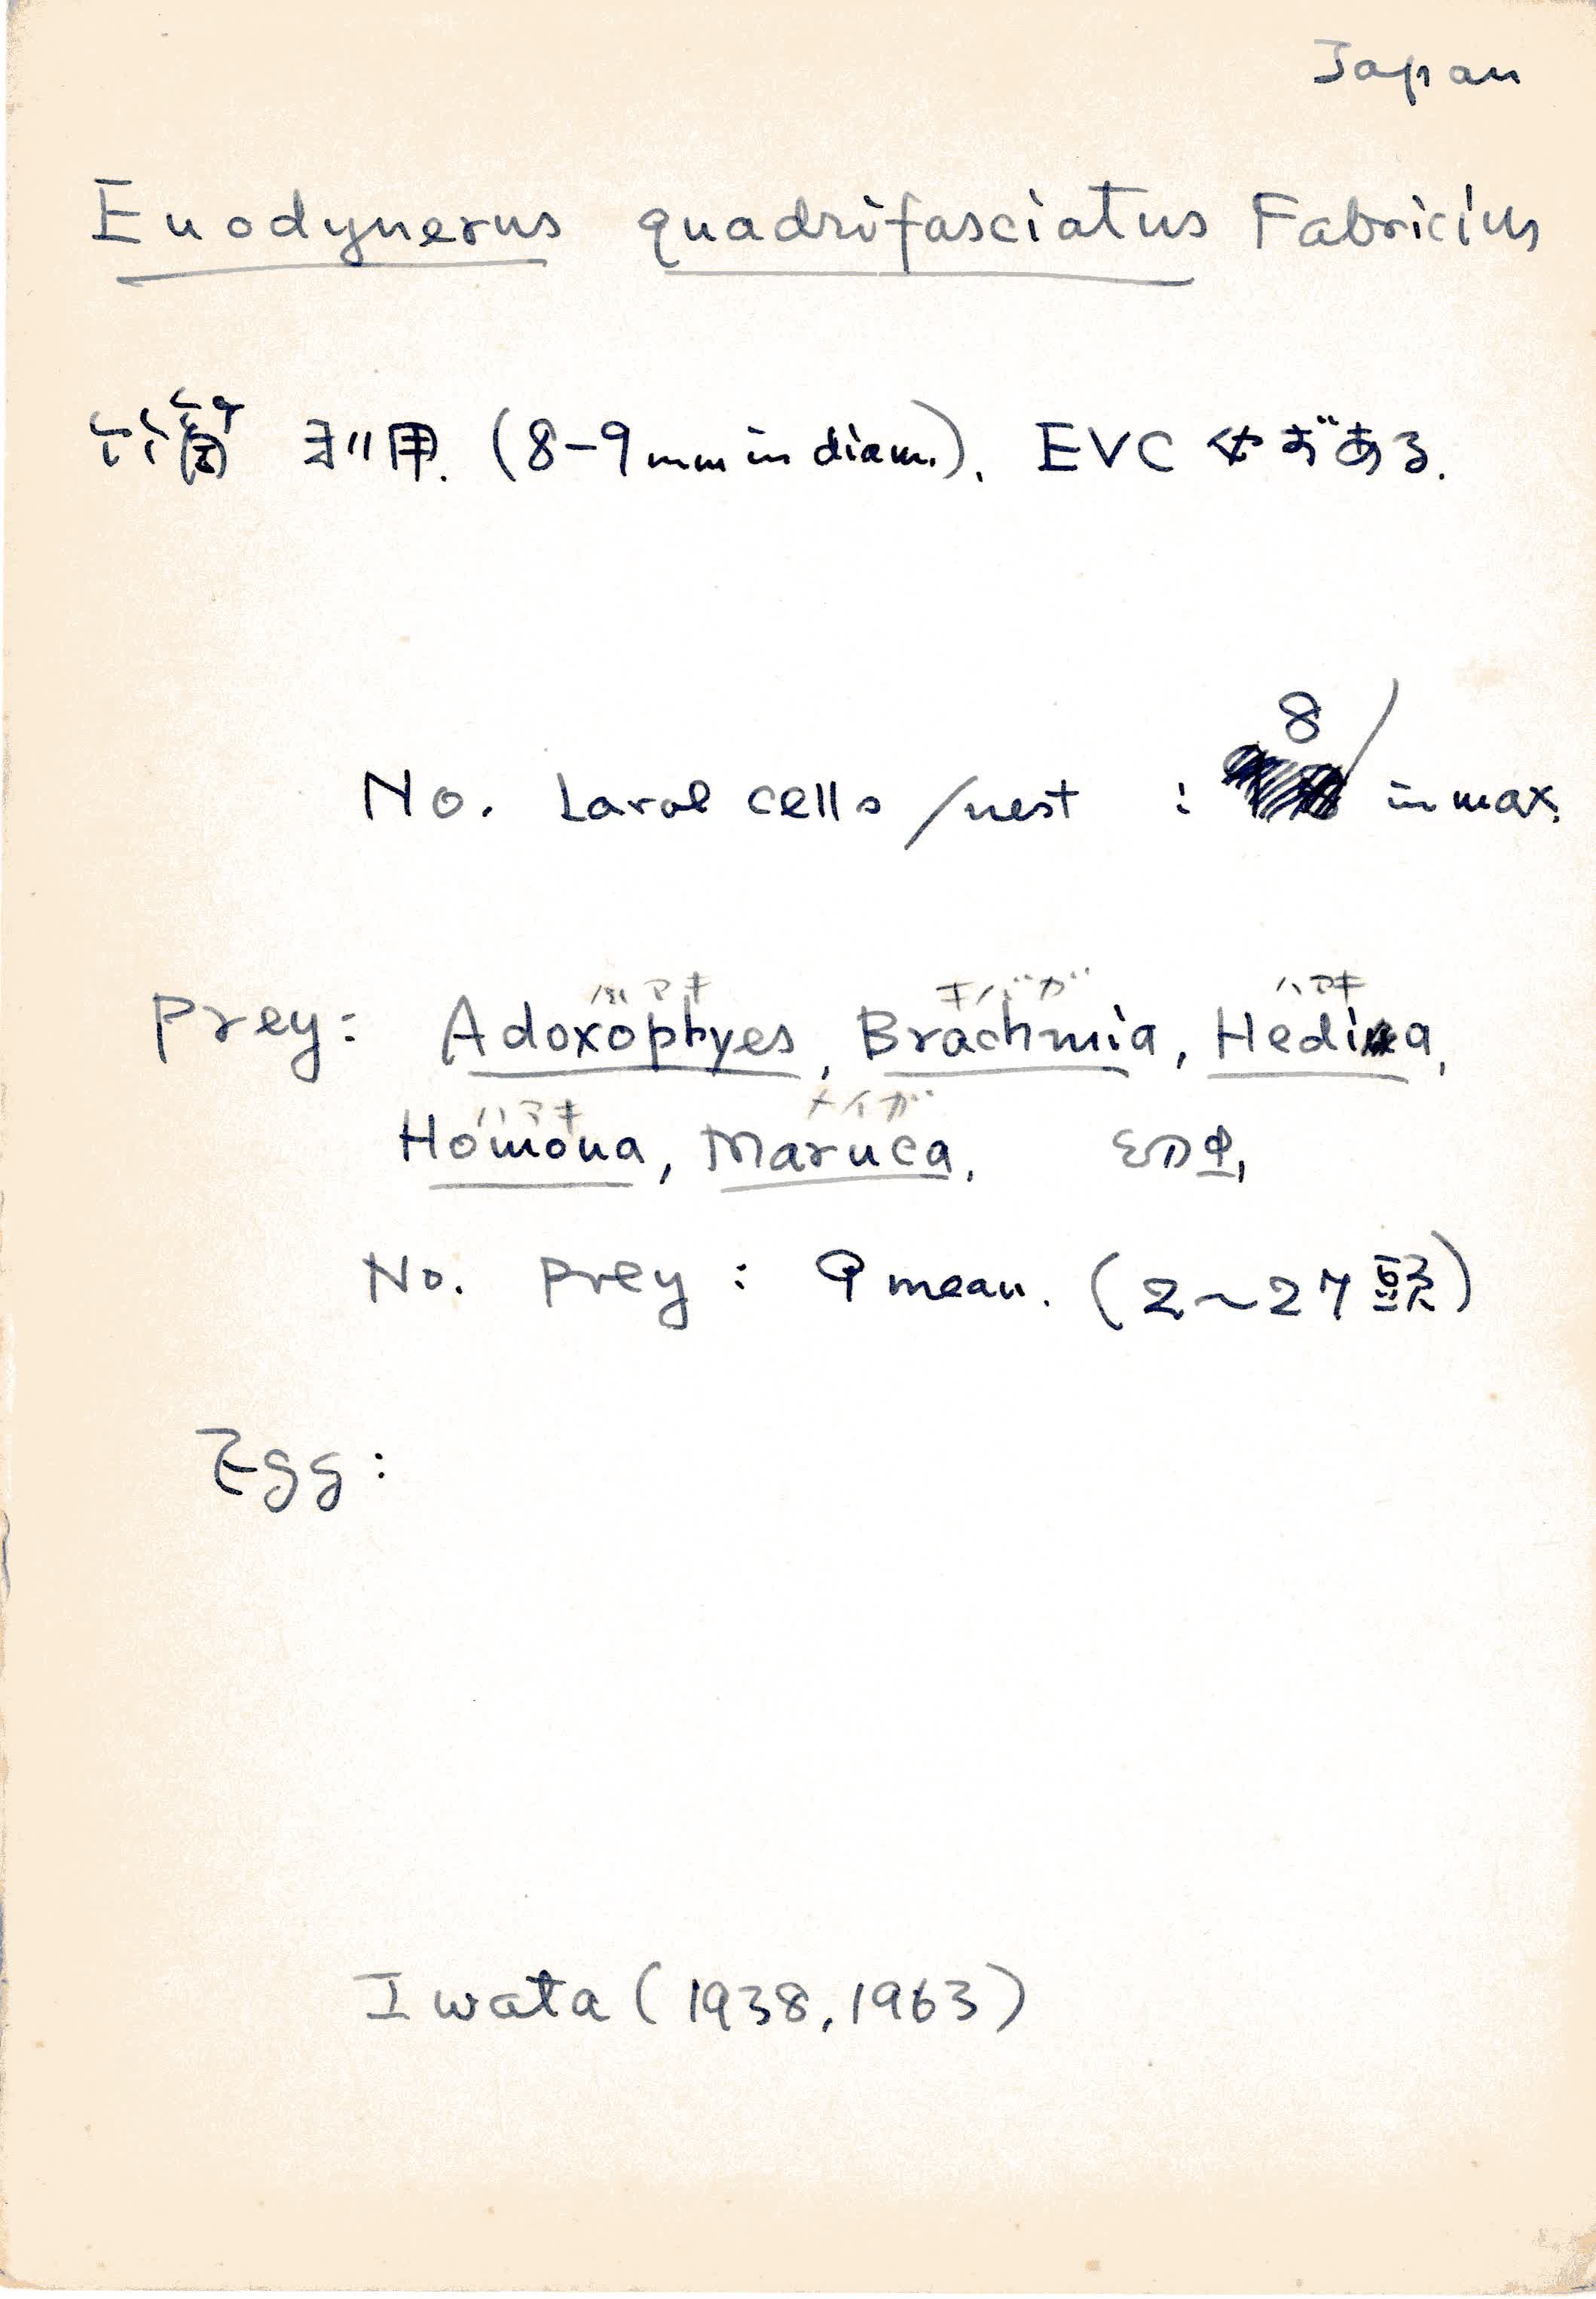 Japan
Euodynerus quadrifasciatus Fabricius
竹筒 利用. (8-9mm in diam.), EVC ある.
No. Larval cells /nest : 8 in max.
ハマキ キバガ ハマキ
Prey: Adoxophyes, Brachmia, Hedina,
ハマキ メイガ
Homona, Maruca, 幼虫,
No. prey : 9 mean. (2~27頭)
Egg:
Iwata (1938, 1963)